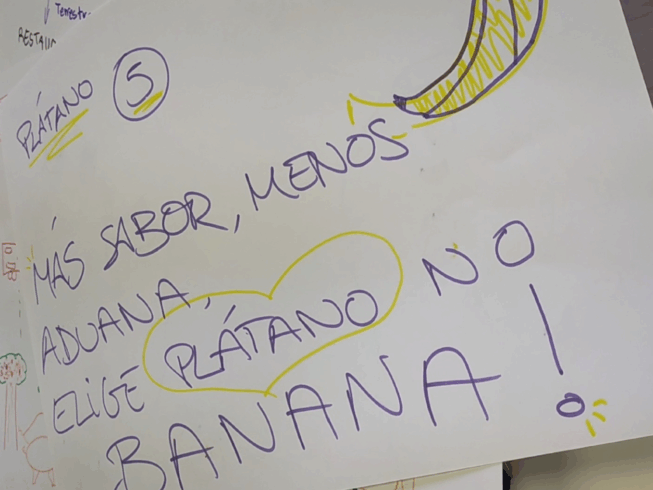 RESTAU
PLÁTANO 5
MÁS SABOR, MENOS
ADUANA,
ELIGE PLÁTANO NO
BANANA!